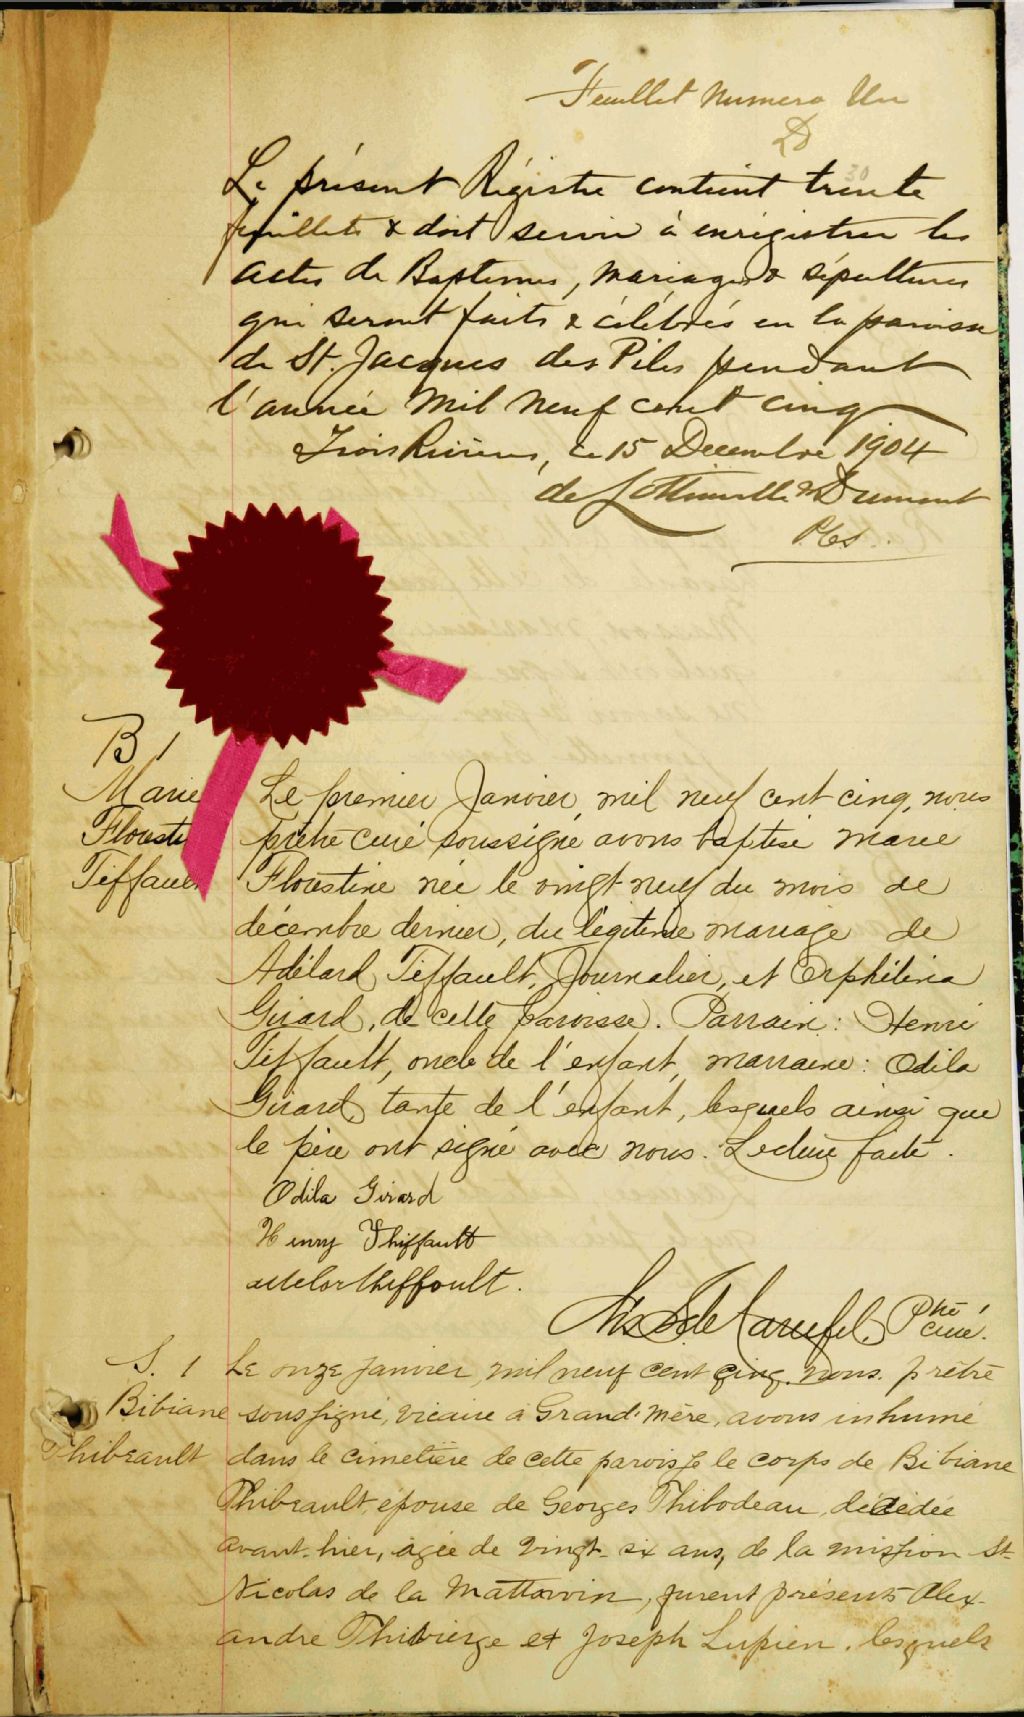 Feuillet Numero Un
Le présent Régistre contient trente
feuillets & doit servir à enrégistrer les
actes de Baptemes, mariages & sépultures
qui seront faits & célébrés en la paroisse
de St. Jacques des Piles pendant
l'année Mil Neuf cent cinq
Trois Rivières, ce 15 Decembre 1904
de Lottinville & Dumont
Pcs.
B 1
Marie
Floresti
Tiffault
Le premier Janvier mil neuf cent cinq, nous
prêtre curé soussigné avons baptisé Marie
Florestine née le vingt neuf du mois de
décembre dernier, du légitime mariage de
Adélard Tiffault, Journalier, et Orphélina
Girard, de cette paroisse. Parrain: Henri
Tiffault, oncle de l'enfant, marraine: Odila
Girard, tante de l'enfant, lesquels ainsi que
le père ont signé avec nous. Lecture faite.
Odila Girard
Henry Thiffault
adelor thiffoult.
Ptre curé.
S. 1
Bibiane
Thibeault
Le onze janvier mil neuf cent cinq, nous prêtre
soussigné, vicaire à Grand'Mère, avons inhumé
dans le cimetière de cette paroisse le corps de Bibiane
Thibeault, épouse de Georges Thibodeau, décédée
avant-hier, âgée de vingt-six ans, de la mission St-
Nicolas de la Mattawin, furent présents Alex-
andre Thivierge et Joseph Lupien, lesquels